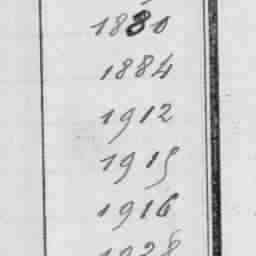 1880
1884
1912
1915
1916
1928